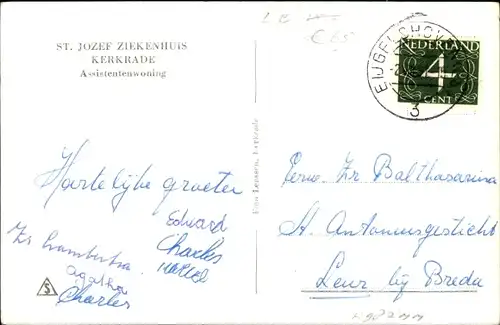 ST. JOZEF ZIEKENHUIS
KERKRADE
Assistentenwoning
EIJGELSHOVEN
3
NEDERLAND
4
CENT
Hartelijke groeten
Eduard
Charles
Zr Lambertha
Agatha
Charles
S
Eerw. Zr Balthasarina
St. Antoniusgesticht
Leur bij Breda